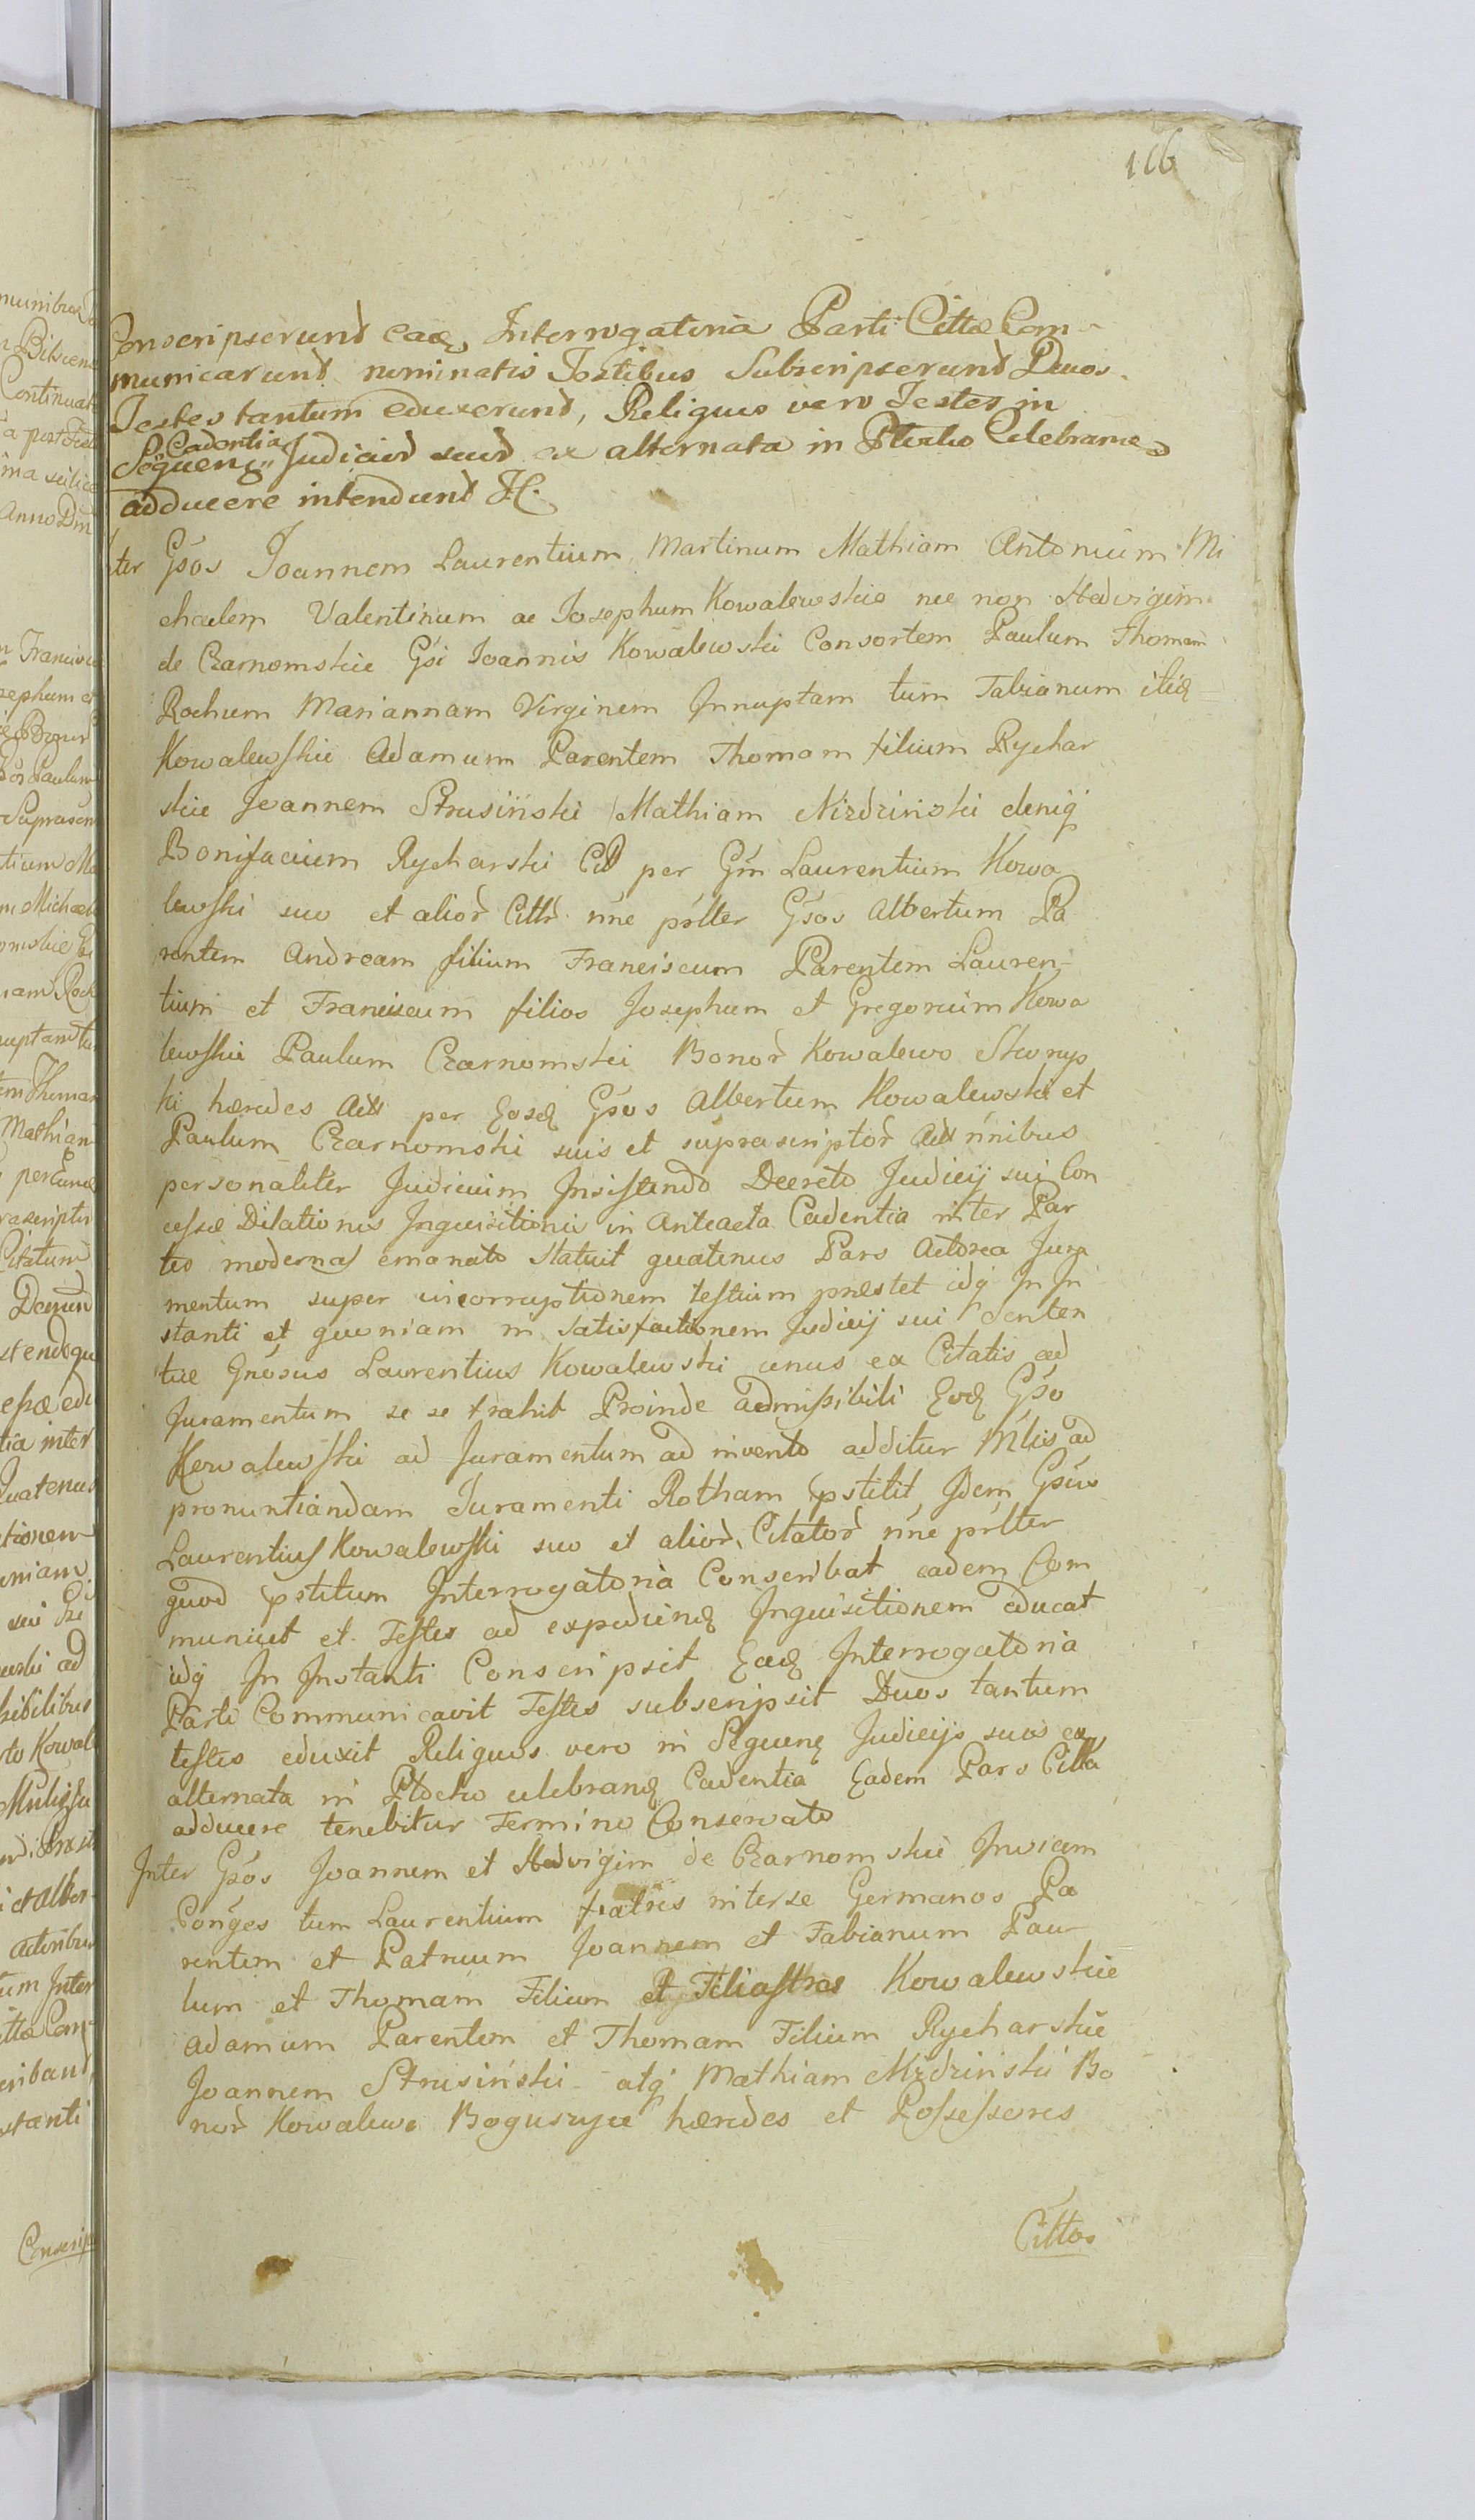 116
Conscripserunt Eaq Interrogatoria Parti Cittae Com-
municarunt nominatis Testibus Subscripserunt Duos
Testes tantum eduxerunt, Reliquos vero Testes in
Cadentia
Sequen Judicior suor ex alternata in Plocko Celebrane
adducere intendunt
Inter Gsos Joannem Laurentium Martinum Mathiam Antonium Mi
chaelem Valentinum ac Josephum Kowalewskie nec non Hedvigim
de Czarnomskie Gsi Joannis Kowalewski Consortem Paulum Thomam
Rochum Mariannam Virginem Innuptam tum Fabianum itidq
Kowalewskie Adamum Parentem Thomam filium Rychar
skie Joannem Strusiński Mathiam Nizdziński deniq
Bonifacium Rycharski Citt per Gm Laurentium Kowa
lewski suo et alior Cittr nne pritter Gsos Albertum Pa
rentem Andream filium Franciscum Parentem Lauren-
tium et Franciscum filios Josephum et Gregorium Kowa
lewskie Paulum Czarnomski Bonor Kowalewo Skorup
ki hæredes Att per Eosq Gsos Albertum Kowalewski et
Paulum Czarnomski suis et suprascriptor Act nnibus
personaliter Judicium Insistendo Decreto Judicij sui Con
cessæ Dilationis Inquisitionis in Anteacta Cadentia inter Par
tes modernas emanato statuit quatenus Pars Actorea Jura
mentum super incorruptionem testium præstet idq In In
stanti et quoniam in satisfactionem Judicij sui Senten
tiæ Gnosus Laurentius Kowalewski unus ex Citatis ad
Juramentum se se trahit Proinde admissibili Eodq Gso
Kowalewski ad Juramentum ad invento additur Mlis ad
pronuntiandam Juramenti Rotham pstitit Idem Gsus
Laurentius Kowalewski suo et alior Citator nne pritter
quod pstitum Interrogatoria Conscribat eadem Com
municet et Testes ad expediendq Inquisitionem educat
idq In Instanti Conscripsit Eadq Interrogatoria
Parti Communicavit Testes subscripsit Duos tantum
testes eduxit Reliquos vero in Sequenq Judicijs suis ex
alternata in Plocko celebranq Cadentia Eadem Pars Citta
adducere tenebitur Termino Conservato
Inter Gsos Joannem et Hedvigim de Czarnomskie Invicem
Conges tum Laurentium fratres inter se Germanos Pa
rentem et Patruum Joannem et Fabianum Pau
lum et Thomam Filium et Filiastros Kowalewskie
Adamum Parentem et Thomam Filium Rycharskie
Joannem Strusiński atq Mathiam Nizdziński Bo
nor Kowalewo Boguszyce hæredes et Possessores
Cittos